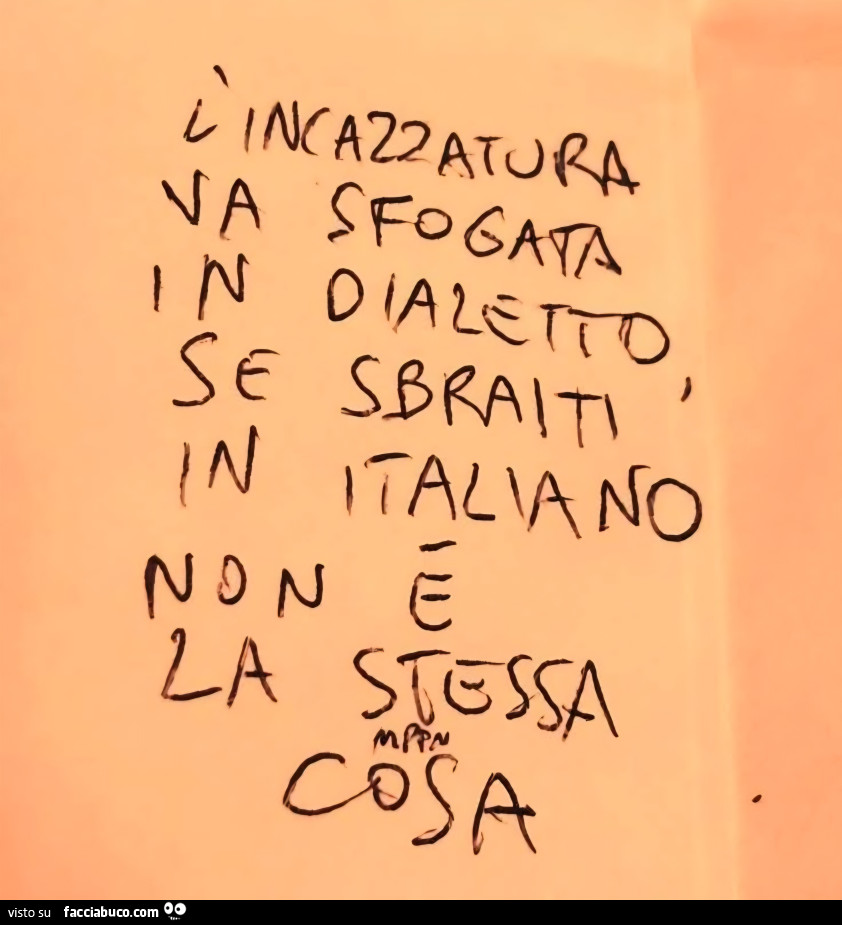 L'INCAZZATURA
VA SFOGATA
IN DIALETTO,
SE SBRAITI
IN ITALIANO
NON È
LA STESSA
MPPN
COSA
visto su facciabuco.com